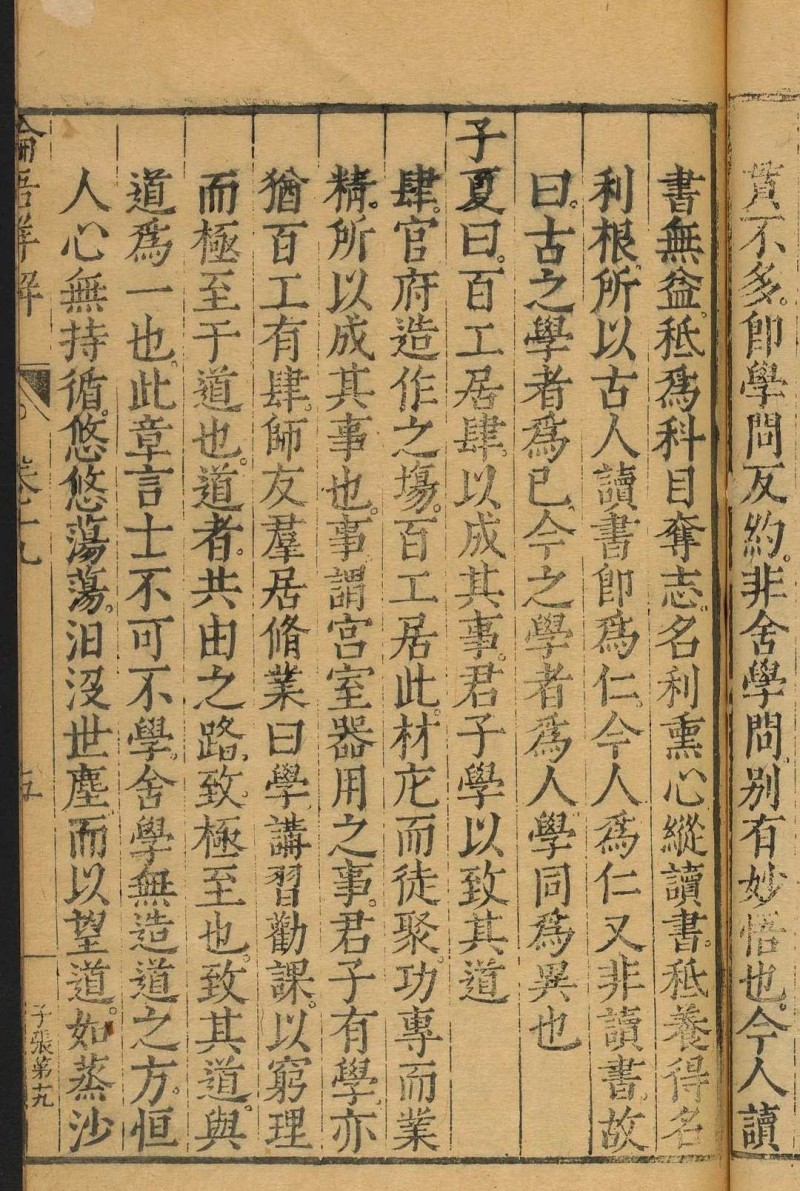 貫不多即學問反約非舍學問別有妙悟也今人讀
書無益秪爲科目奪志名利熏心縱讀書秪養得名
利根所以古人讀書即爲仁今人爲仁又非讀書故
曰古之學者爲已今之學者爲人學同爲異也
子夏曰百工居肆以成其事君子學以致其道
肆官府造作之塲百工居此材庀而徒聚功專而業
精所以成其事也事謂宮室器用之事君子有學亦
猶百工有肆師友羣居脩業曰學講習勸課以窮理
而極至于道也道者共由之路致極至也致其道與
道爲一也此章言士不可不學舍學無造道之方恒
人心無持循悠悠蕩蕩汩沒世塵而以望道如蒸沙
論語詳解
卷十九
五
子張第十九